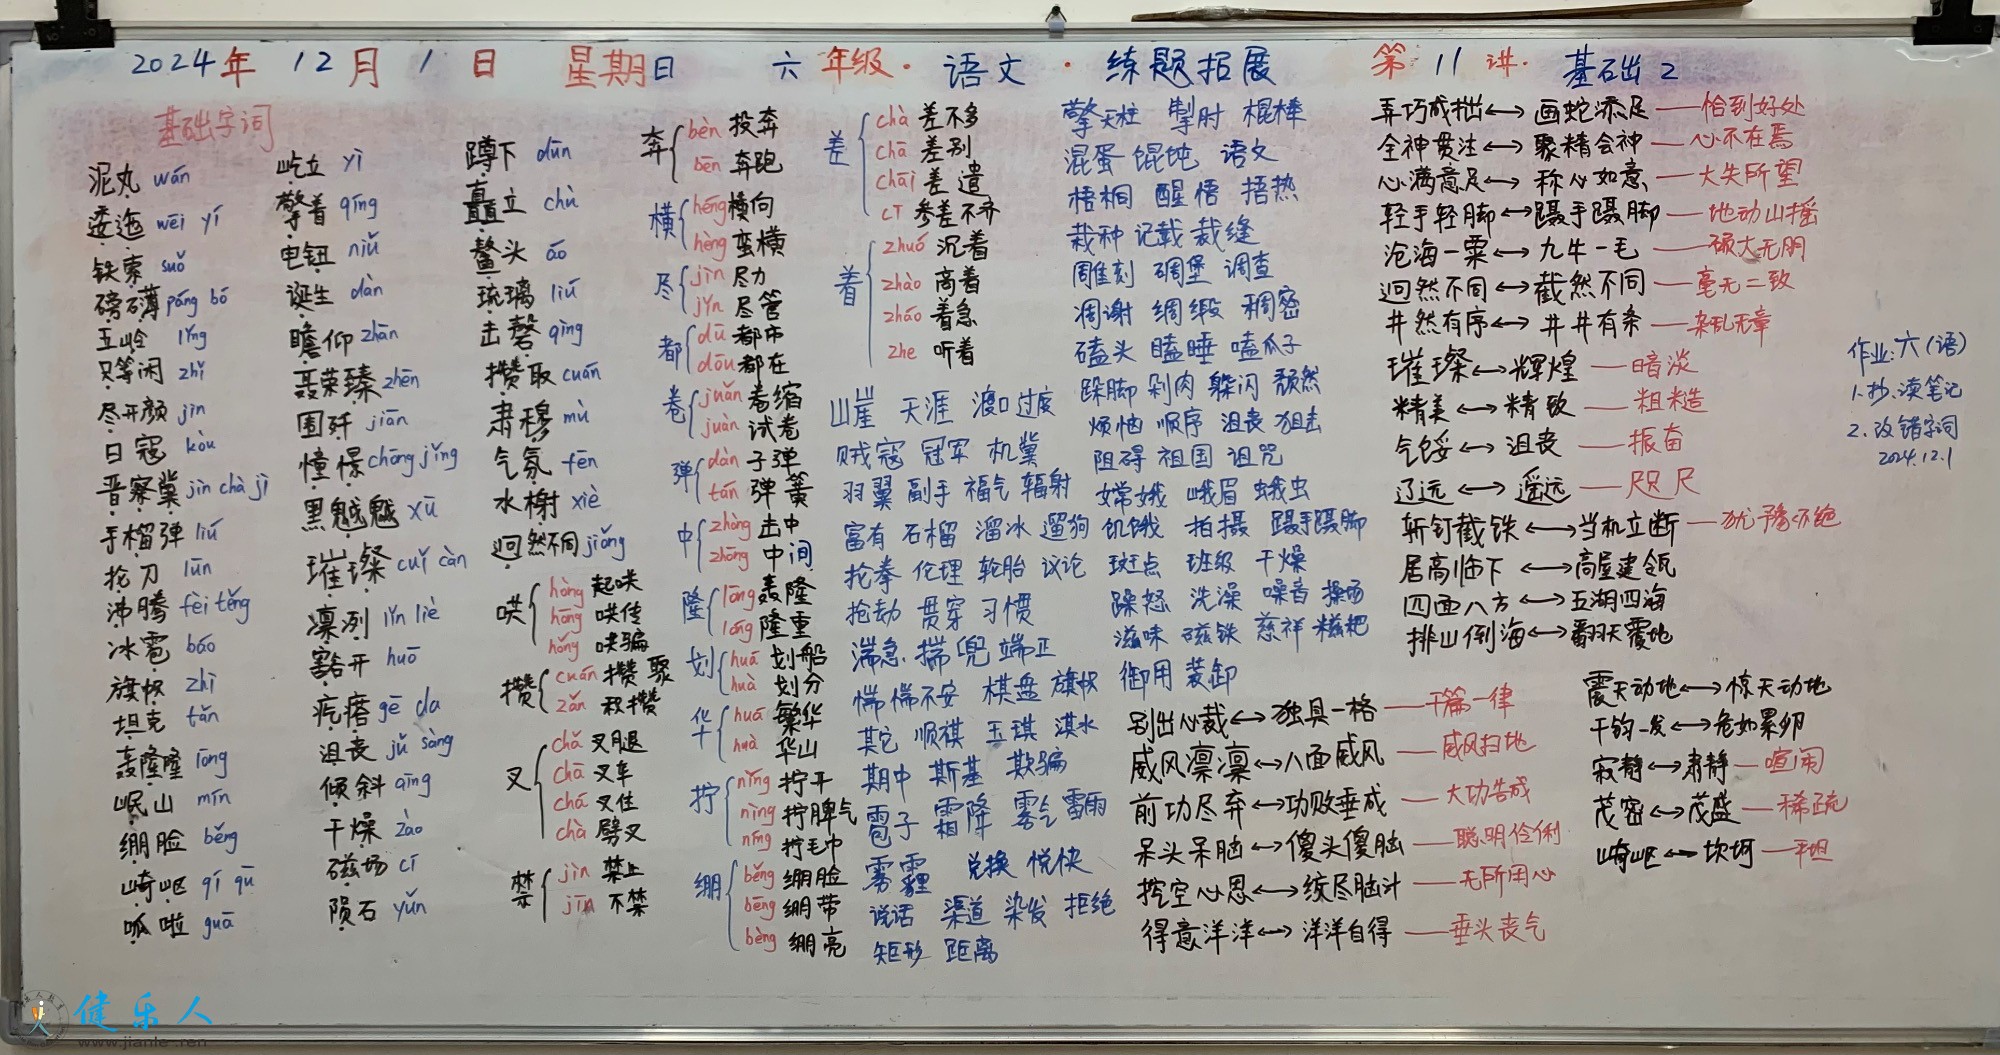 2024年 12月 1日 星期日 六年级·语文·练题拓展 第11讲·基础2
基础字词
泥丸 wán
逶迤 wēi yí
铁索 suǒ
磅礴 páng bó
五岭 lǐng
只等闲 zhǐ
尽开颜 jìn
日寇 kòu
晋察冀 jìn chà jì
手榴弹 liú
抡刀 lūn
沸腾 fèi téng
冰雹 báo
旗帜 zhì
坦克 tǎn
轰隆隆 lōng
岷山 mín
绷脸 běng
崎岖 qí qū
呱啦 guā
屹立 yì
擎着 qíng
电钮 niǔ
诞生 dàn
瞻仰 zhān
荟荣臻 zhēn
围歼 jiān
憧憬 chōng jǐng
黑魆魆 xū
璀璨 cuǐ càn
凛冽 lǐn liè
豁开 huō
疙瘩 gē da
沮丧 jǔ sàng
倾斜 qīng
干燥 zào
磁场 cí
陨石 yǔn
蹲下 dūn
矗立 chù
鳌头 áo
琉璃 liú
击磬 qìng
攒取 cuán
肃穆 mù
气氛 fēn
水榭 xiè
迥然不同 jiǒng
哄 hòng 起哄
hōng 哄传
hǒng 哄骗
攒 cuán 攒聚
zǎn 积攒
叉 chǎ 叉腿
chā 叉车
chá 叉住
chà 劈叉
禁 jìn 禁止
jīn 不禁
奔 bèn 投奔
bēn 奔跑
横 héng 横向
hèng 蛮横
尽 jìn 尽力
jǐn 尽管
都 dū 都市
dōu 都在
卷 juǎn 卷缩
juàn 试卷
弹 dàn 子弹
tán 弹簧
中 zhòng 击中
zhōng 中间
隆 lōng 轰隆
lóng 隆重
划 huá 划船
huà 划分
华 huá 繁华
huà 华山
拧 nǐng 拧开
nìng 拧脾气
níng 拧毛巾
绷 běng 绷脸
bēng 绷带
bèng 绷亮
差 chà 差不多
chā 差别
chāi 差遣
cī 参差不齐
着 zhuó 沉着
zhào 高着
zháo 着急
zhe 听着
山崖 天涯 渡口 过度
贼寇 冠军 机冀
羽翼 副手 福气 辐射
富有 石榴 溜冰 遛狗
抡拳 伦理 轮胎 议论
抢劫 贯穿 习惯
湍急 揣兜 端正
惴惴不安 棋盘 旗帜
其它 顺祺 玉琪 淇水
期中 斯基 欺骗
雹子 霜降 雾气 雷雨
雾霾 兑换 悦快
说话 渠道 染发 拒绝
矩形 距离
擎天柱 掣肘 棍棒
混蛋 馄饨 语文
梧桐 醒悟 捂热
栽种 记载 裁缝
雕刻 碉堡 调查
凋谢 绸缎 稠密
磕头 瞌睡 嗑瓜子
跺脚 剁肉 躲闪 颓然
烦恼 顺序 沮丧 狙击
阻碍 祖国 诅咒
嫦娥 峨眉 蛾虫
饥饿 拍摄 蹑手蹑脚
斑点 班级 干燥
躁怒 洗澡 噪音 操场
滋味 磁铁 慈祥 糍粑
御用 装卸
别出心裁↔独具一格——千篇一律
威风凛凛↔八面威风——威风扫地
前功尽弃↔功败垂成——大功告成
呆头呆脑↔傻头傻脑——聪明伶俐
挖空心思↔绞尽脑汁——无所用心
得意洋洋↔洋洋自得——垂头丧气
弄巧成拙↔画蛇添足——恰到好处
全神贯注↔聚精会神——心不在焉
心满意足↔称心如意——大失所望
轻手轻脚↔蹑手蹑脚——地动山摇
沧海一粟↔九牛一毛——硕大无朋
迥然不同↔截然不同——毫无二致
井然有序↔井井有条——杂乱无章
璀璨↔辉煌——暗淡
精美↔精致——粗糙
气馁↔沮丧——振奋
辽远↔遥远——咫尺
斩钉截铁↔当机立断——犹豫不绝
居高临下↔高屋建瓴
四面八方↔五湖四海
排山倒海↔翻天覆地
震天动地↔惊天动地
千钧一发↔危如累卵
寂静↔肃静——喧闹
茂密↔茂盛——稀疏
崎岖↔坎坷——平坦
作业:六(语)
1.抄、读笔记
2.改错字词
2024.12.1
健乐人
www.jianle.ren